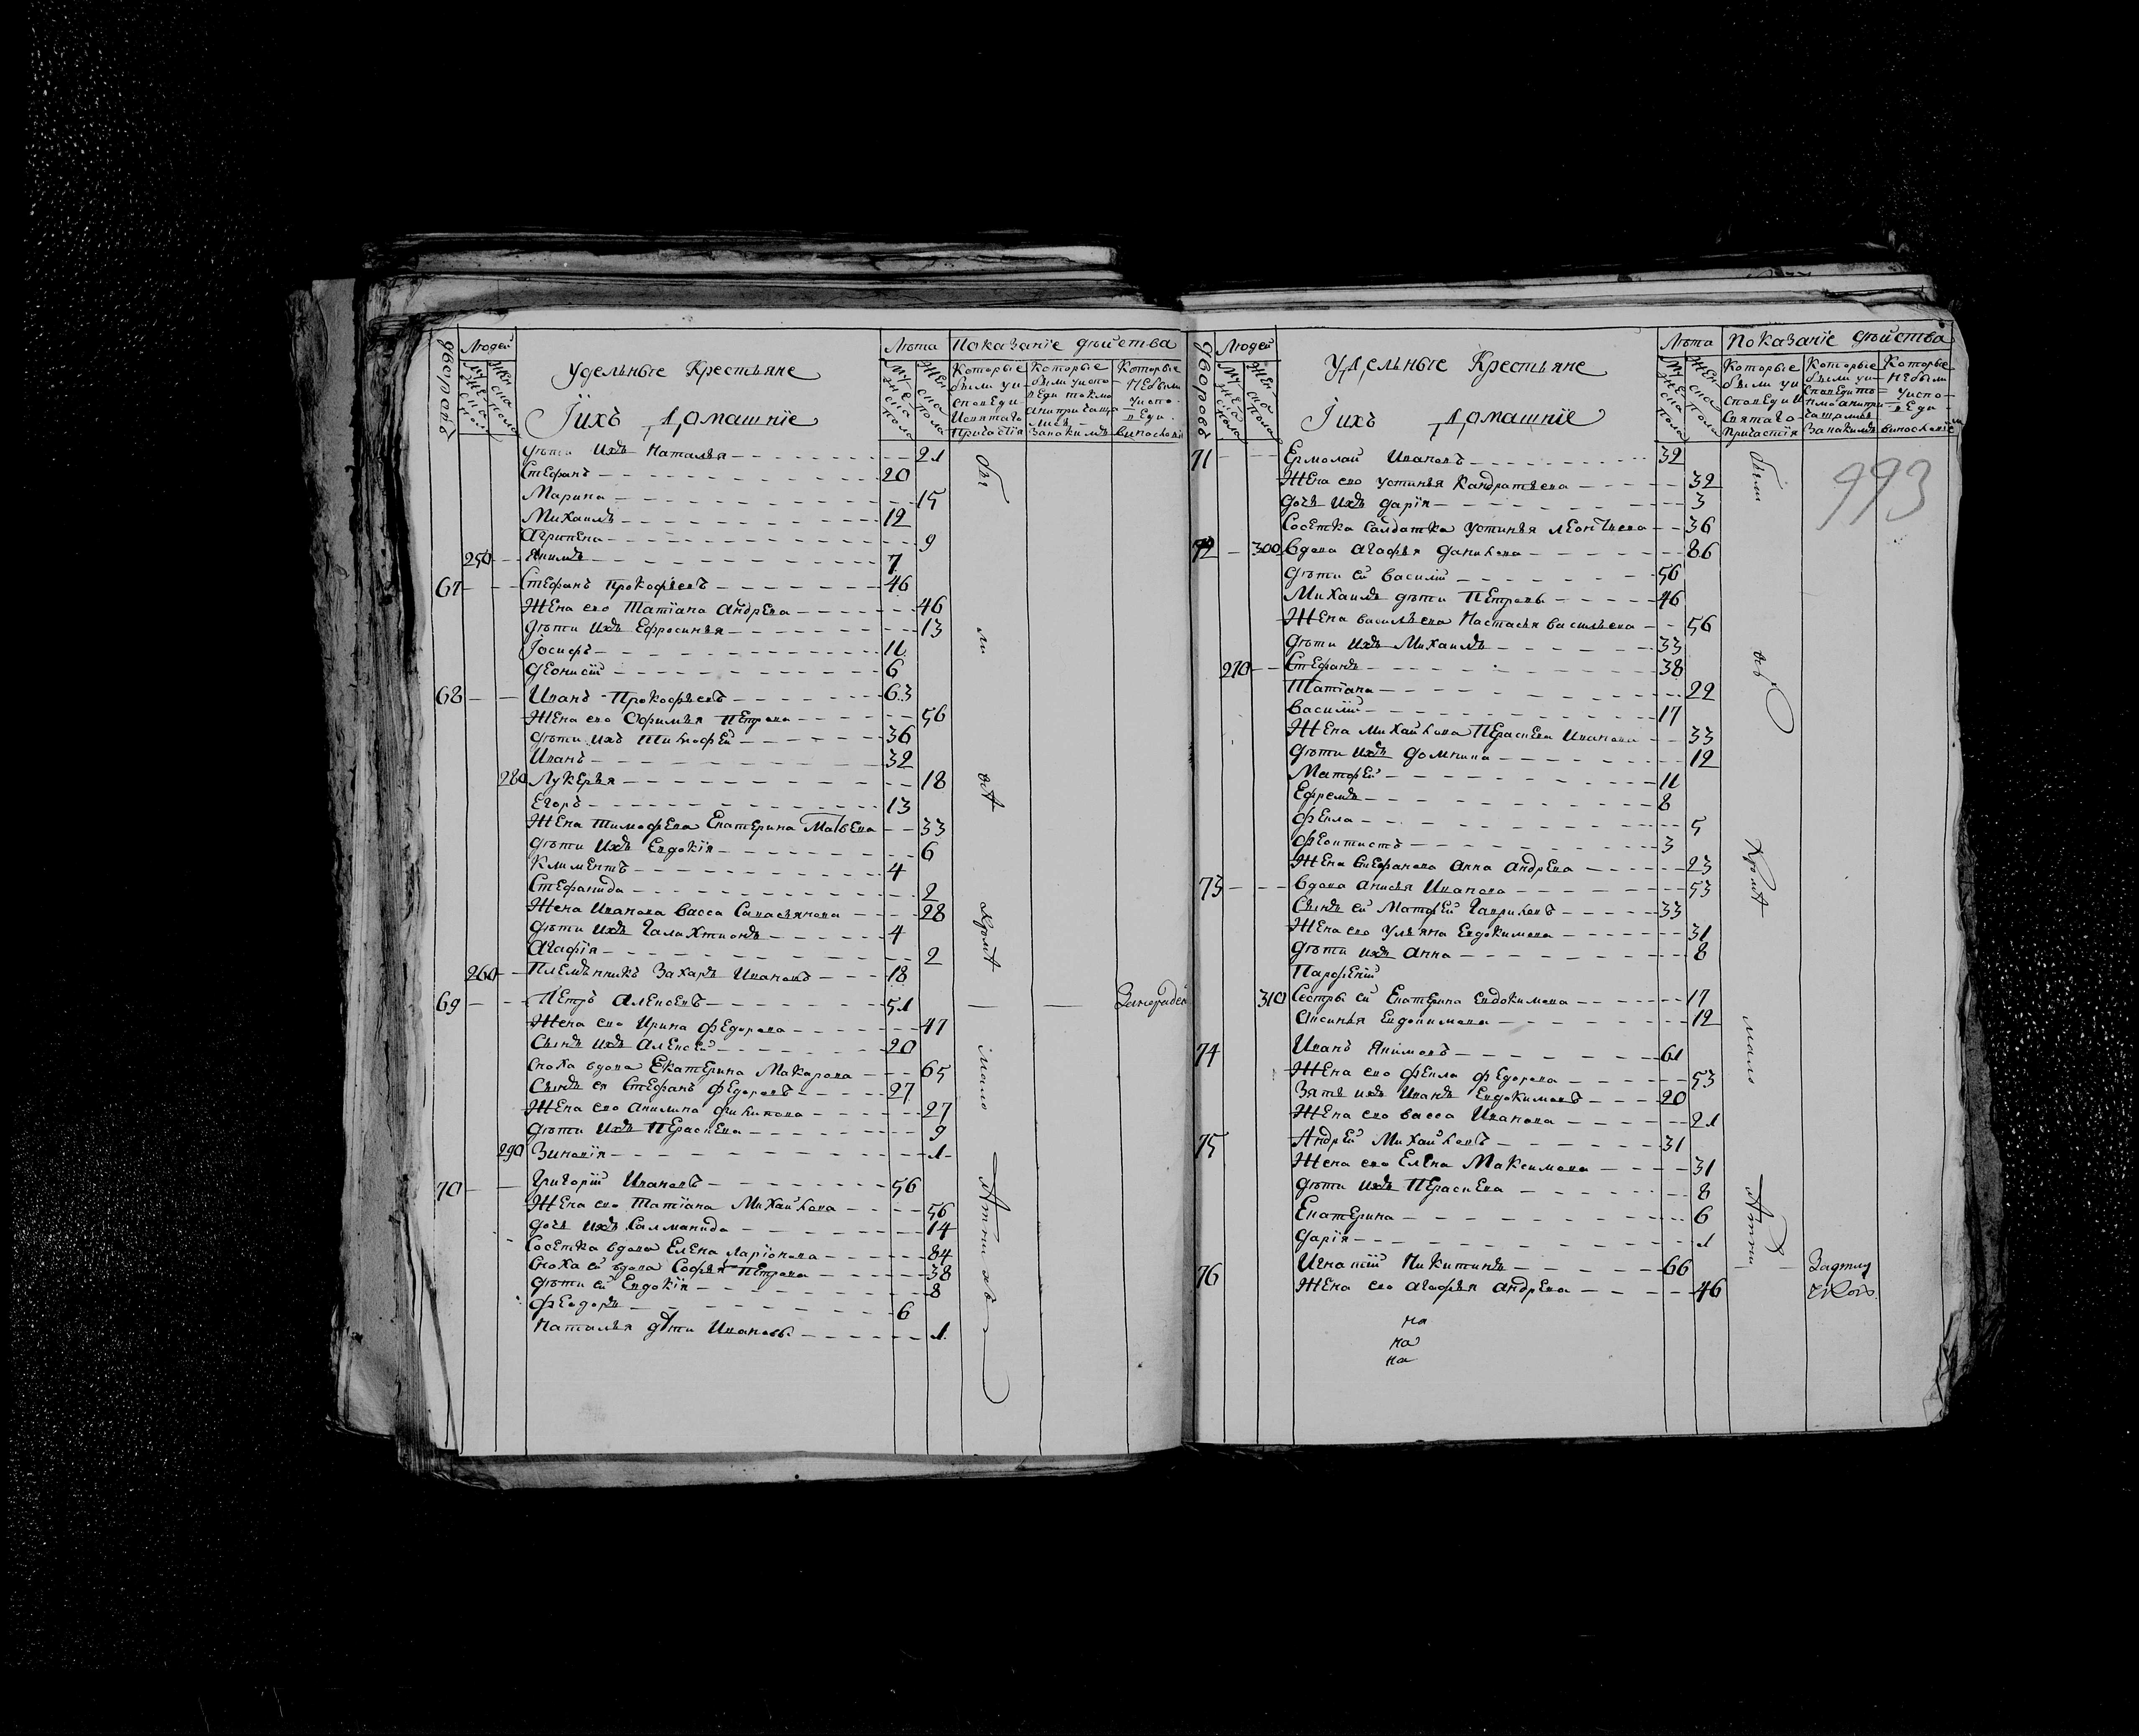 дворовъ
Людей
Удельные Крестьяне
Лѣта
Показанїе дѣйства
мужеска пола
женска пола
Їихъ Домашнїе
мужеска пола
женска пола
Которые были уисповеди исвятаго причастїя
Которые были уисповеди токмо анипричащались
Которые небыли уисповеди
дѣти ихъ Наталья 21
Стефанъ 20
Марина 15
Михаилъ 12
Агрипена 9
250 Якимъ 7
67 Стефанъ Прокофьевъ 46
Жена ево Татїана Андрева 46
дѣти ихъ Ефросинья 13
Їосифъ 11
Деонисїй 6
68 Иванъ Прокофьевъ 63
Жена ево Офимья Петрова 56
дѣти ихъ Тимофей 36
Иванъ 32
280 Лукерья 18
Егоръ 13
Жена тимофева Екатерина Мавѣева 33
дѣти ихъ Евдокїя 6
Климентъ 4
Стефанида 2
Жена Иванова Васса Савасьянова 28
дѣти ихъ Галахтионъ 4
Агафїя 2
260 Племѣнникъ Захаръ Ивановъ 18
69 Петръ Алексевъ 51
Жена ево Ирина Федорова 47
Сынъ ихъ Алексей 20
Сноха вдова Екатерина Макарова 65
Сынъ ея Стефанъ Федоровъ 27
Жена ево Акилина Филипова 27
дѣти ихъ Пераскева 9
290 Зиновїя 1
70 Григорїй Ивановъ 56
Жена ево Татїана Михайлова 56
дочь ихъ Салманида 14
Соседка вдова Елена Ларїонова 84
Сноха ей вдова Софья Петрова 38
дѣти ей Евдокїя 8
Феодоръ 6
Наталья дѣти Ивановы 1
дворовъ
Людей
Удельные Крестьяне
Лѣта
Показанїе дѣйства
мужеска пола
женска пола
Їихъ Домашнїе
мужеска пола
женска пола
Которые были уисповеди и святаго причастїя
Которые были уисповеди
Которые небыли уисповеди
993
71 Ермолай Ивановъ 32
Жена ево Устинья Кандратьева 32
дочь ихъ Дарїя 3
Соседка Салдатка Устинья Леонтьева 36
72 300 Вдова Агафья Данилова 86
дѣти ей Василїй 56
Михаилъ дѣти Петровы 46
Жена васильева Настасья Васильева 56
дѣти ихъ Михаилъ 33
270 Стефанъ 38
Татїана 22
Василїй 17
Жена Михайлова Пераскева Иванова 33
дѣти ихъ Домнина 12
Матфей 11
Ефремъ 8
Фекла 5
Феоктистъ 3
Жена Стефанова Анна Андрева 23
73 Вдова Анисья Иванова 53
Сынъ ей Матфей Гавриловъ 33
Жена ево Ульяна Евдокимова 31
дѣти ихъ Анна 8
Парфенїй
310 Сестры ей Екатерина Евдокимова 17
Аксинья Евдокимова 12
74 Иванъ Якимовъ 61
Жена ево Фекла Федорова 53
Зять ихъ Иванъ Евдокимовъ 20
Жена ево Васса Иванова 21
75 Андрей Михайловъ 31
Жена ево Елена Максимова 31
дѣти ихъ Пераскева 8
Екатерина 6
Дарїя 1
76 Игнатїй Никитинъ 66
Жена ево Агафья Андрева 46
на
на
на